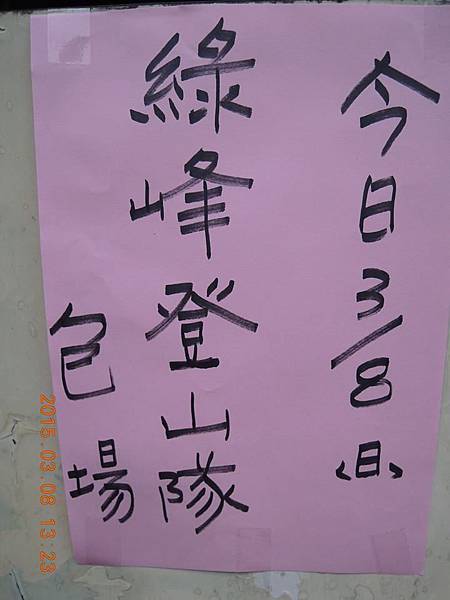 今日3/8(日)
綠峰登山隊
包場
2015.03.08 13:23